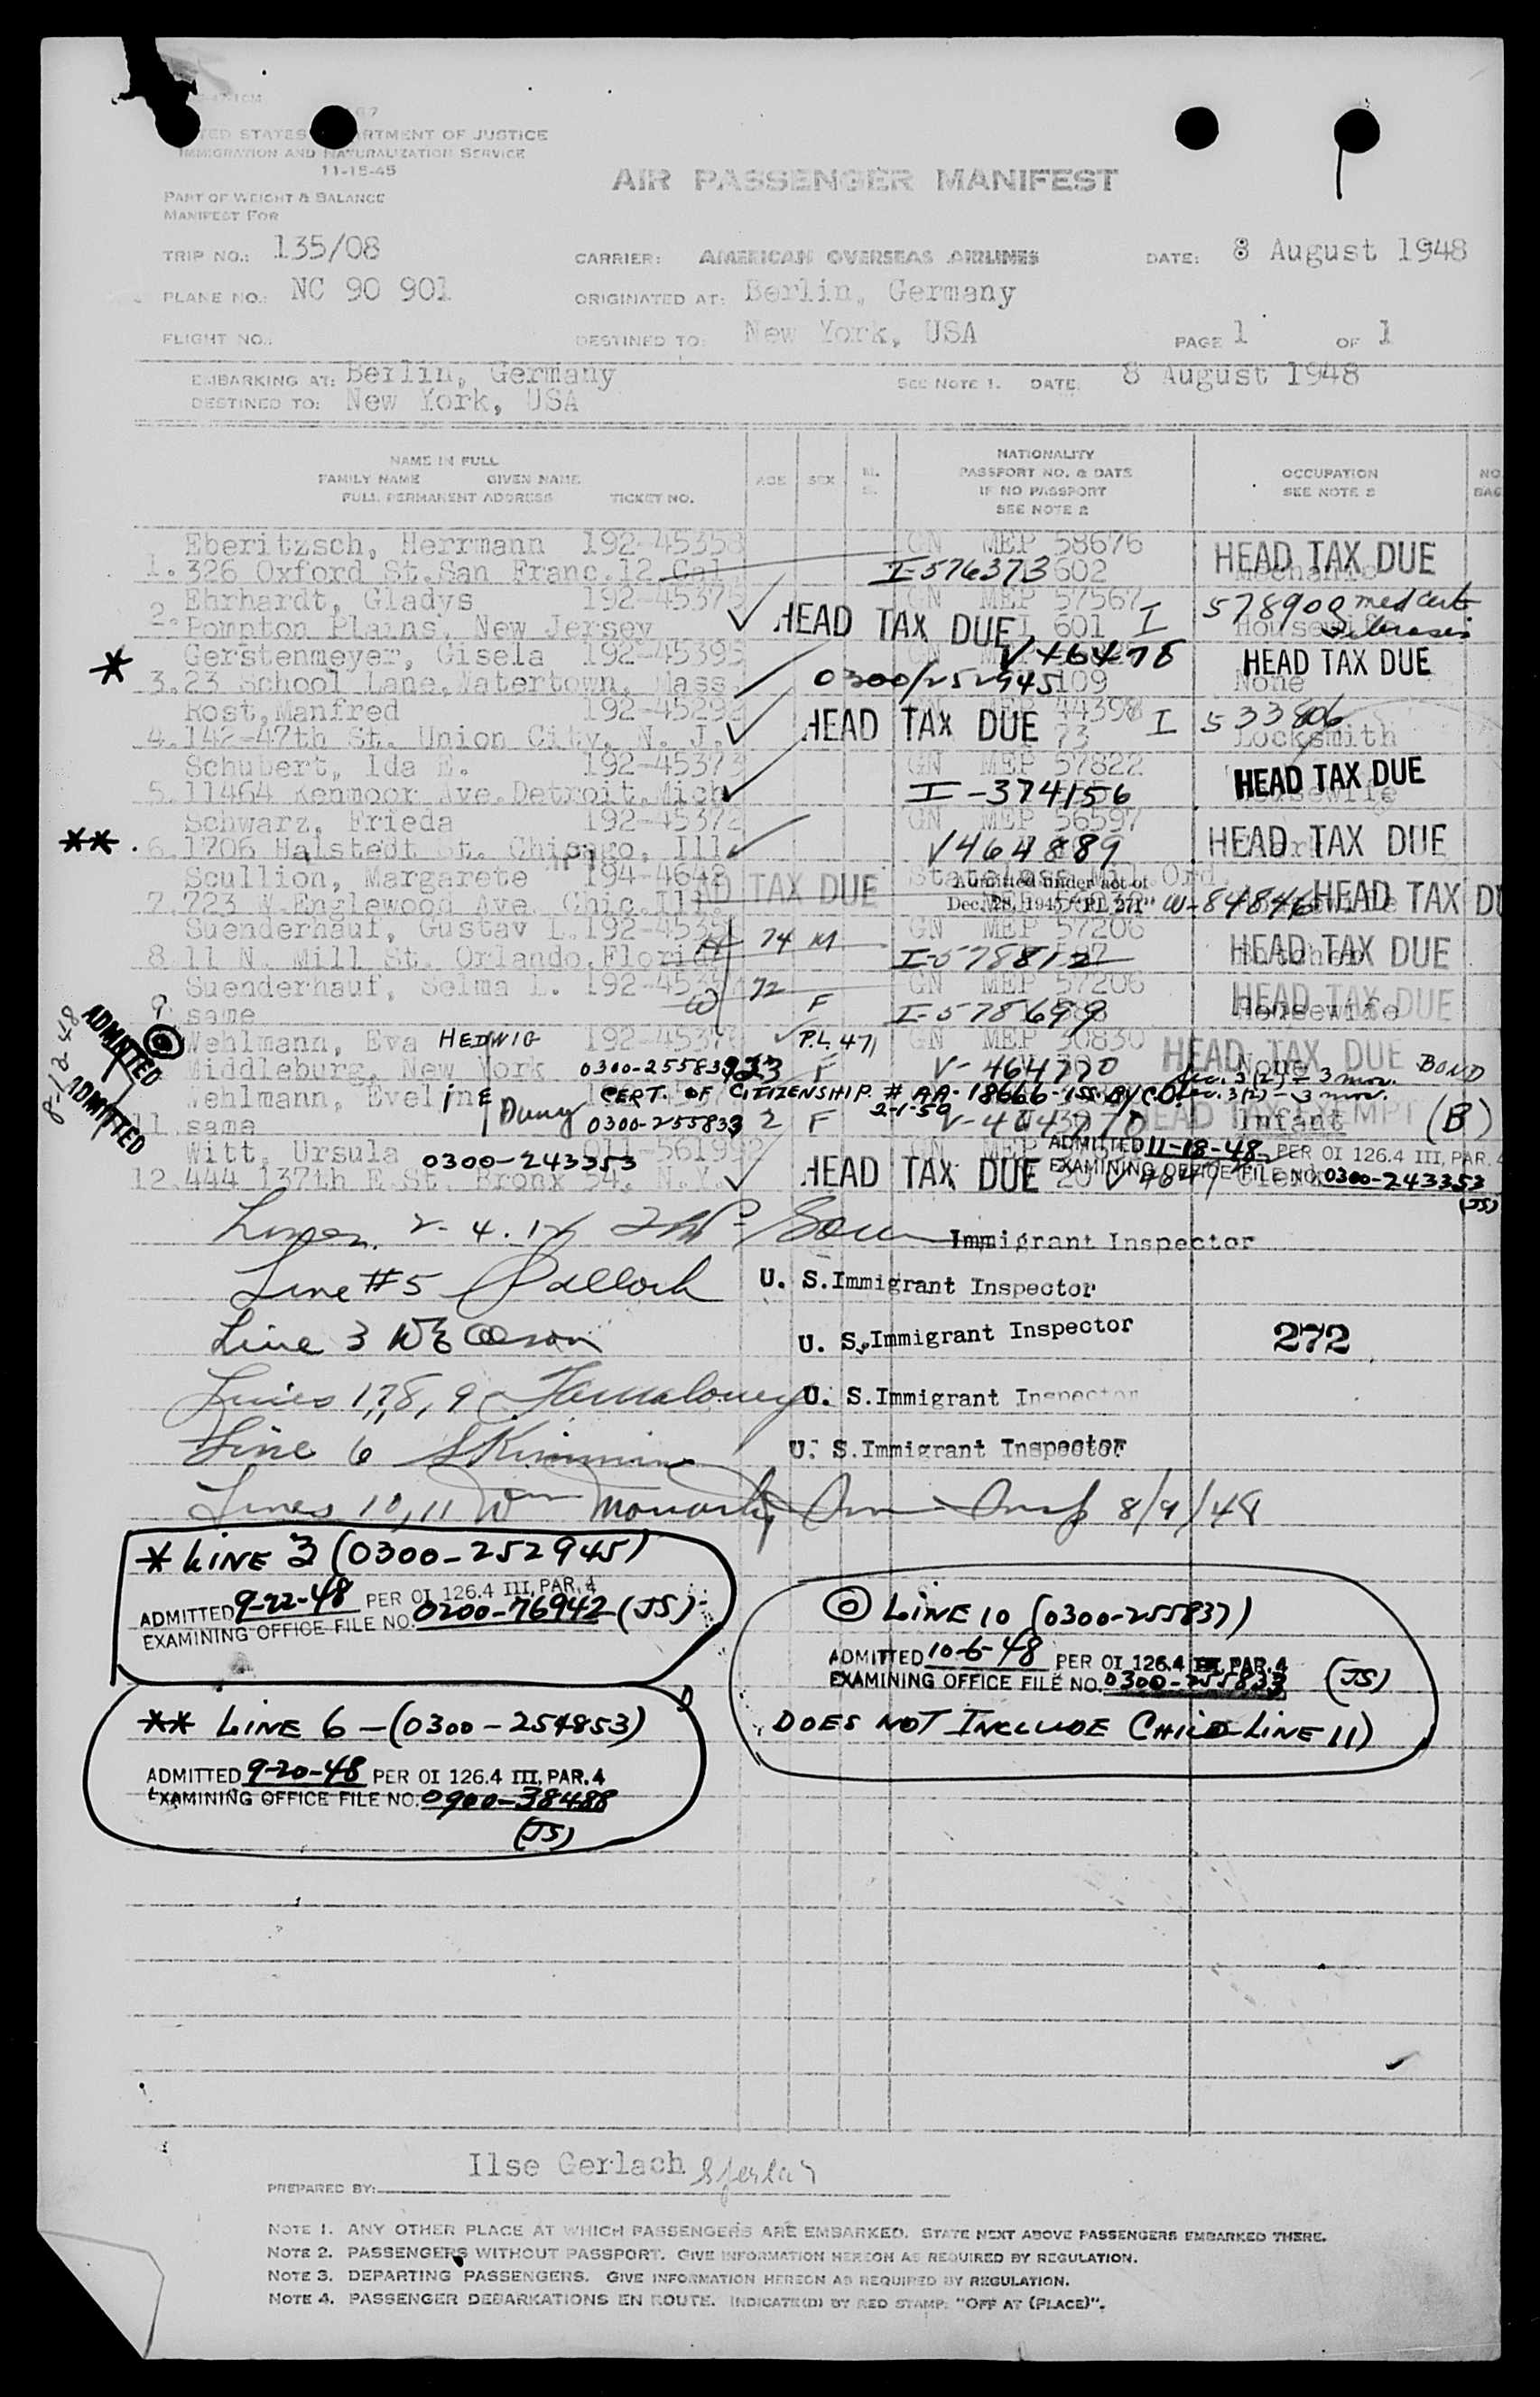 UNITED STATES DEPARTMENT OF JUSTICE
IMMIGRATION AND NATURALIZATION SERVICE
11-15-45
PART OF WEIGHT & BALANCE
MANIFEST FOR
AIR PASSENGER MANIFEST
TRIP NO.: 135/08 CARRIER: AMERICAN OVERSEAS AIRLINES DATE: 8 August 1948
PLANE NO.: NC 90 901 ORIGINATED AT: Berlin, Germany
FLIGHT NO.: DESTINED TO: New York, USA PAGE 1 OF 1
EMBARKING AT: Berlin, Germany SEE NOTE 1. DATE: 8 August 1948
DESTINED TO: New York, USA
NAME IN FULL
FAMILY NAME GIVEN NAME
FULL PERMANENT ADDRESS TICKET NO. AGE SEX M. S. NATIONALITY PASSPORT NO. & DATE IF NO PASSPORT SEE NOTE 2 OCCUPATION SEE NOTE 2 NO BAG
Eberitzsch, Herrmann 192-45358 GN MEP 58676 HEAD TAX DUE
1. 326 Oxford St. San Franc. 12 Cal I-576373 602 Mechanic
Ehrhardt, Gladys 192-45375 GN MEP 57567 I 578900 med cert
2. Pompton Plains, New Jersey HEAD TAX DUE 601 Housewife
Gerstenmeyer, Gisela 192-45395 V 46478 HEAD TAX DUE
* 3. 23 School Lane, Watertown, Mass. 0300/252945 109 None
Rost, Manfred 192-45292 44398 I 533806
4. 142-47th St. Union City, N. J. HEAD TAX DUE 73 Locksmith
Schubert, Ida E. 192-45373 GN MEP 57822 HEAD TAX DUE
5. 11464 Kenmoor Ave. Detroit, Mich I-374156 Housewife
Schwarz, Frieda 192-45372 GN MEP 56597
** 6. 1706 Halstedt St. Chicago, Ill. V464889 HEAD TAX DUE
Scullion, Margarete 194-4642 HEAD TAX DUE Stateless Mil. Ord. Admitted under act of
7. 723 W. Englewood Ave. Chic. Ill. Dec. 28, 1945 "PL 271" W-84846 HEAD TAX DU
Suenderhauf, Gustav L. 192-4535 74 M GN MEP 57206 HEAD TAX DUE
8 11 N. Mill St. Orlando, Florida I-578812 Butcher
Suenderhauf, Selma L. 192-4535 W 72 GN MEP 57206 HEAD TAX DUE
9 same F I-578699 Housewife
Wehlmann, Eva HEDWIG 192-45376 P.L. 471 GN MEP 30830 HEAD TAX DUE
Middleburg, New York 0300-255833 23 F V-464770 None Sec. 3(2) - 3 mos. BOND
8-12-48 ADMITTED
ADMITTED
Wehlmann, Eveline CERT. OF CITIZENSHIP # AA-18666-ISS. BY C.O. Sec. 3(2) - 3 mos.
Dany 2-1-50 HEAD TAX EXEMPT
11 same 0300-255833 2 F V-464770 Infant (B)
Witt, Ursula 011-561992 GN MEP ADMITTED 11-18-48 PER OI 126.4 III, PAR. 4
0300-243353
12. 444 137th E. St. Bronx 54, N.Y. HEAD TAX DUE EXAMINING OFFICE FILE NO. 0300-243353
Clerk (JS)
Lines 2-4.12 Immigrant Inspector
Line #5 Pollock U. S. Immigrant Inspector
Line 3 W E Olson U. S. Immigrant Inspector 272
Lines 1,7,8,9 U. S. Immigrant Inspector
Line 6 U. S. Immigrant Inspector
Lines 10, 11 Wm Moriarty Imm Insp 8/9/48
* LINE 3 (0300-252945)
ADMITTED 9-22-48 PER OI 126.4 III, PAR. 4
EXAMINING OFFICE FILE NO. 0200-76942 (JS)
◎ LINE 10 (0300-255837)
ADMITTED 10-6-48 PER OI 126.4 III, PAR. 4
EXAMINING OFFICE FILE NO. 0300-255833 (JS)
DOES NOT INCLUDE CHILD-LINE 11)
** LINE 6 - (0300-254853)
ADMITTED 9-20-48 PER OI 126.4 III, PAR. 4
EXAMINING OFFICE FILE NO. 0900-38488
(JS)
PREPARED BY: Ilse Gerlach
NOTE 1. ANY OTHER PLACE AT WHICH PASSENGERS ARE EMBARKED. STATE NEXT ABOVE PASSENGERS EMBARKED THERE.
NOTE 2. PASSENGERS WITHOUT PASSPORT. GIVE INFORMATION HEREON AS REQUIRED BY REGULATION.
NOTE 3. DEPARTING PASSENGERS. GIVE INFORMATION HEREON AS REQUIRED BY REGULATION.
NOTE 4. PASSENGER DEBARKATIONS EN ROUTE. INDICATE(D) BY RED STAMP. "OFF AT (PLACE)".